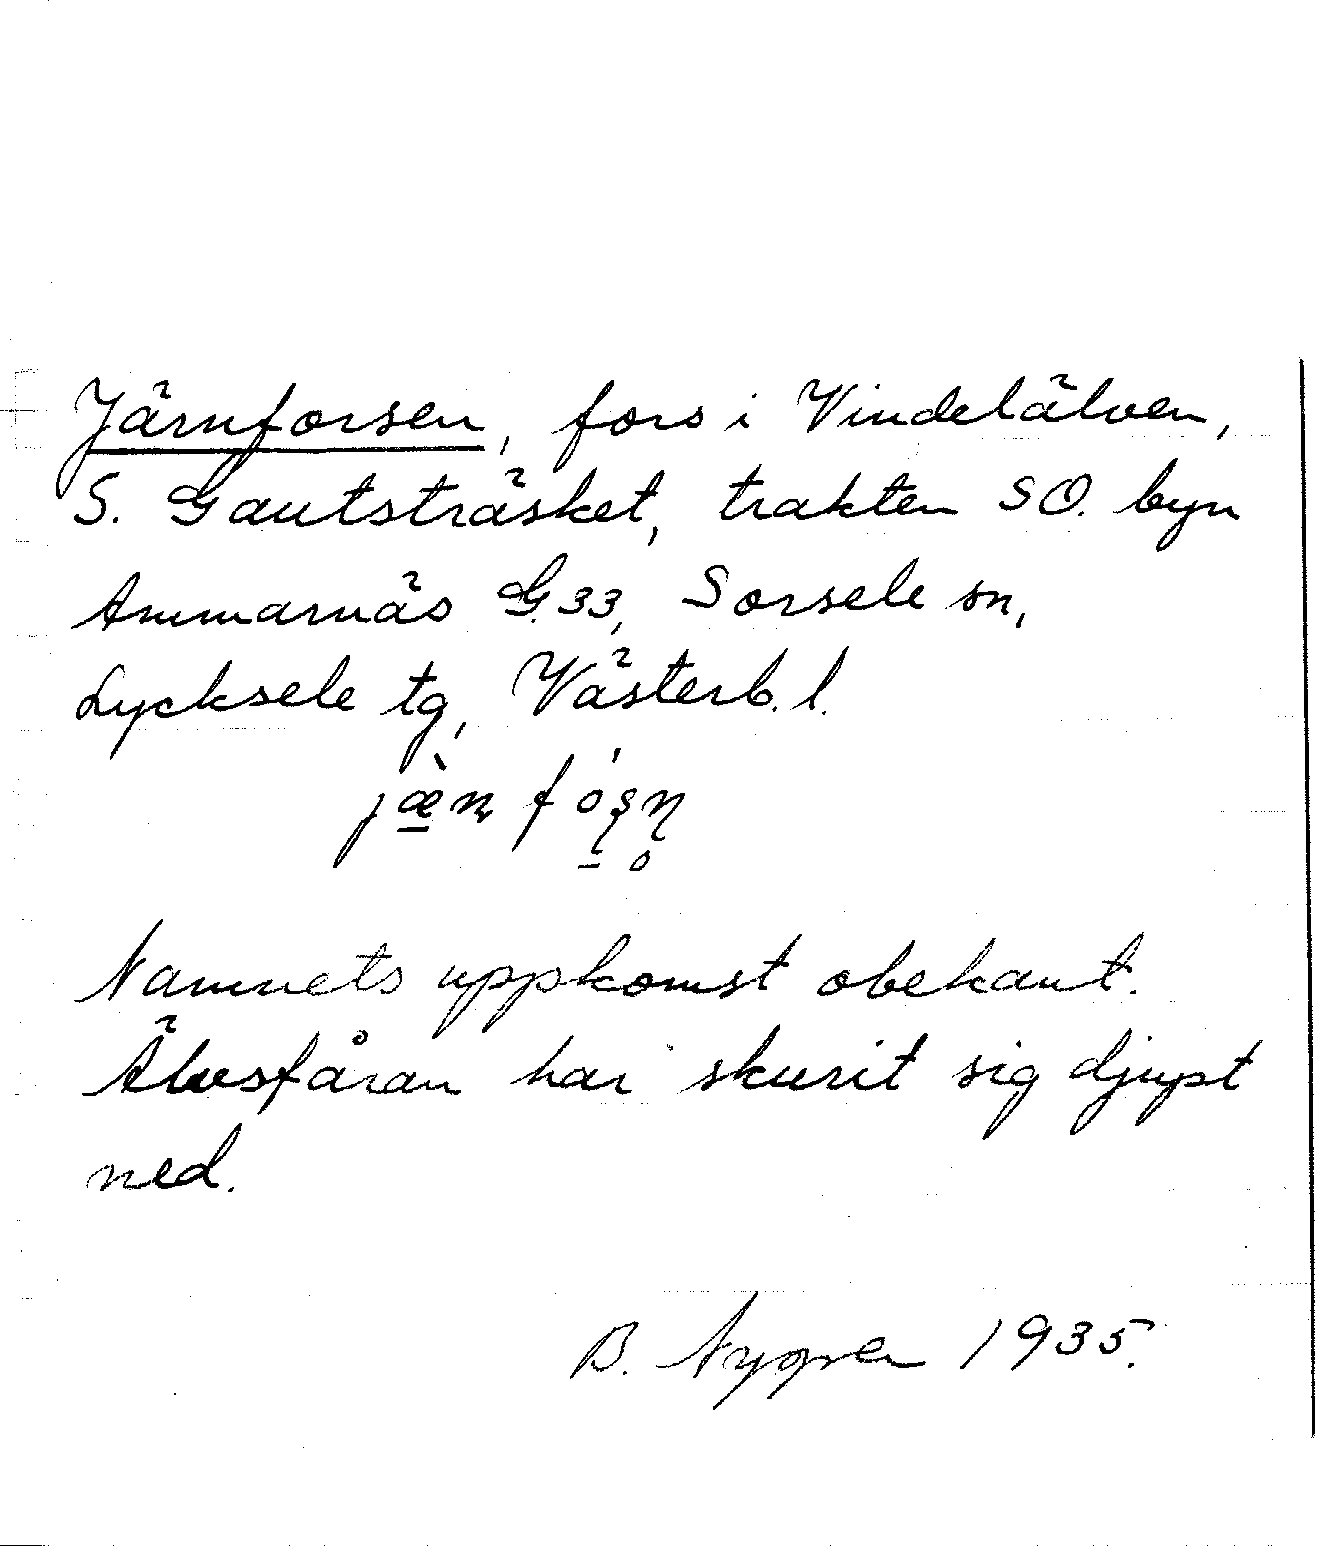 Järnforsen, fors i Vindelälven,
S. Gautsträsket, trakten SO. byn
Ammarnäs G.33, Sorsele sn,
Lycksele tg, Västerb. l.
Namnets uppkomst obekant.
Älvsfåran har skurit sig djupt
ned.
B. Nygren 1935.